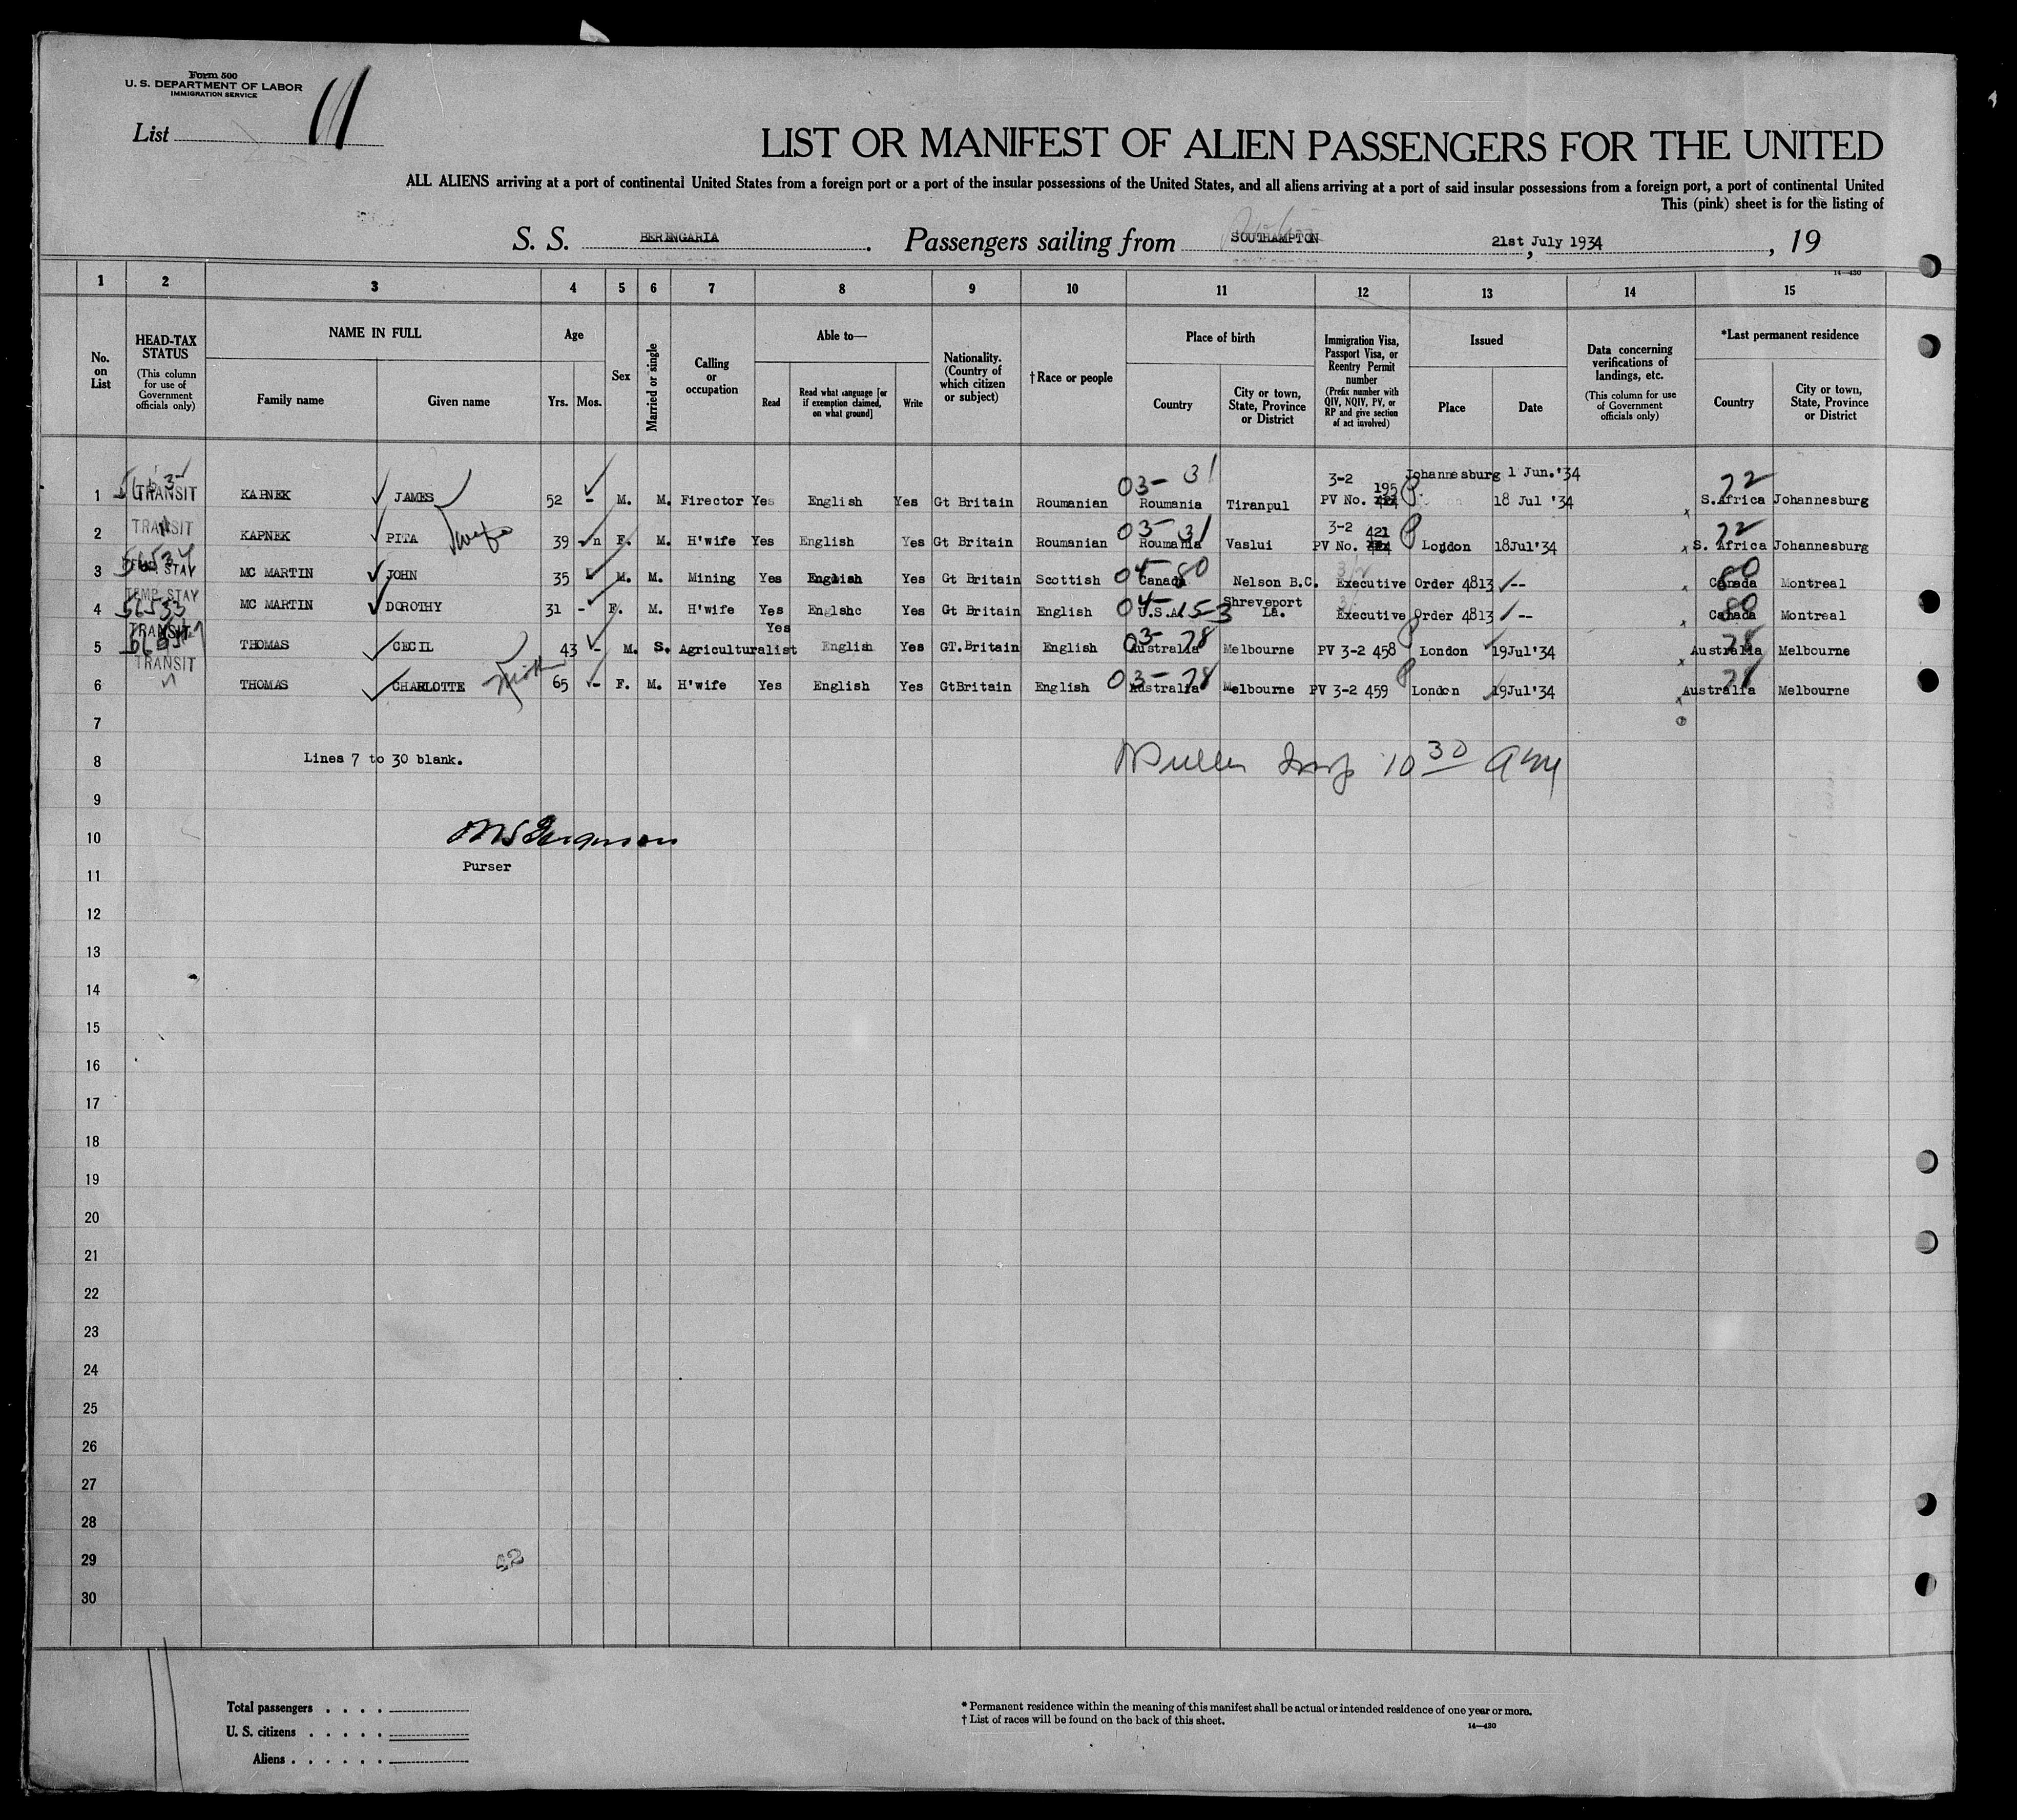 Form 500
U. S. DEPARTMENT OF LABOR
IMMIGRATION SERVICE
List 11
LIST OR MANIFEST OF ALIEN PASSENGERS FOR THE UNITED
ALL ALIENS arriving at a port of continental United States from a foreign port or a port of the insular possessions of the United States, and all aliens arriving at a port of said insular possessions from a foreign port, a port of continental United
This (pink) sheet is for the listing of
S. S. BERENGARIA. Passengers sailing from SOUTHAMPTON, 21st July 1934, 19
14—430
1 2 3 4 5 6 7 8 9 10 11 12 13 14 15
No. on List
HEAD-TAX STATUS (This column for use of Government officials only)
NAME IN FULL Family name Given name
Age Yrs. Mos.
Sex
Married or single
Calling or occupation
Able to— Read Read what language [or if exemption claimed, on what ground] Write
Nationality. (Country of which citizen or subject)
† Race or people
Place of birth Country City or town, State, Province or District
Immigration Visa, Passport Visa, or Reentry Permit number (Prefix number with QIV, NQIV, PV, or RP and give section of act involved)
Issued Place Date
Data concerning verifications of landings, etc. (This column for use of Government officials only)
*Last permanent residence Country City or town, State, Province or District
1 TRANSIT KAPNEK JAMES 52 - M. M. Firector Yes English Yes Gt Britain Roumanian 03- 31 Roumania Tiranpul 3-2 PV No. 195 Johannesburg 1 Jun.'34 18 Jul '34 22 S.Africa Johannesburg
2 TRANSIT KAPNEK PITA wife 39 - F. M. H'wife Yes English Yes Gt Britain Roumanian 03- 31 Roumania Vaslui 3-2 PV No. 421 London 18Jul'34 22 S. Africa Johannesburg
3 TEMP STAY MC MARTIN JOHN 35 - M. M. Mining Yes English Yes Gt Britain Scottish 04- 80 Canada Nelson B.C. Executive Order 4813 -- 80 Canada Montreal
4 TEMP STAY 56533 MC MARTIN DOROTHY 31 - F. M. H'wife Yes Englshc Yes Gt Britain English 04- 153 U.S.A. Shreveport La. Executive Order 4813 -- 80 Canada Montreal
5 TRANSIT THOMAS CECIL 43 - M. S. Agriculturalist Yes English Yes GT.Britain English 03- 78 Australia Melbourne PV 3-2 458 London 19Jul'34 78 Australia Melbourne
6 TRANSIT THOMAS CHARLOTTE 65 - F. M. H'wife Yes English Yes GtBritain English 03- 78 Australia Melbourne PV 3-2 459 London 19Jul'34 78 Australia Melbourne
7
8 Lines 7 to 30 blank. 10 30 AM
9
10
Purser
11
12
13
14
15
16
17
18
19
20
21
22
23
24
25
26
27
28
29 42
30
Total passengers . . . .
U. S. citizens . . . . .
Aliens . . . . . .
* Permanent residence within the meaning of this manifest shall be actual or intended residence of one year or more.
† List of races will be found on the back of this sheet.
14—430